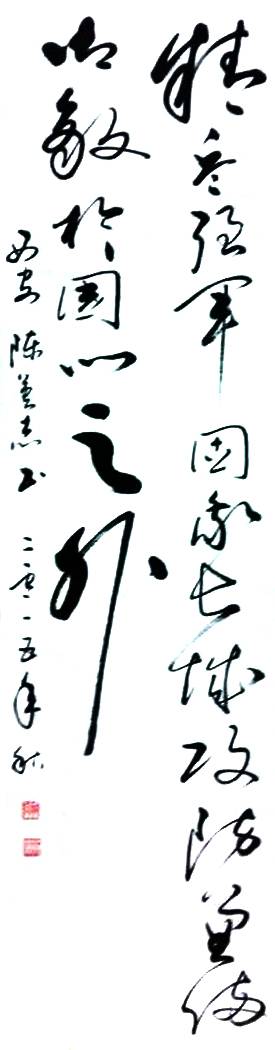 精兵强军固我长城攻防兼备
御敌於國门之外
西安 陈志书 二零一五年秋